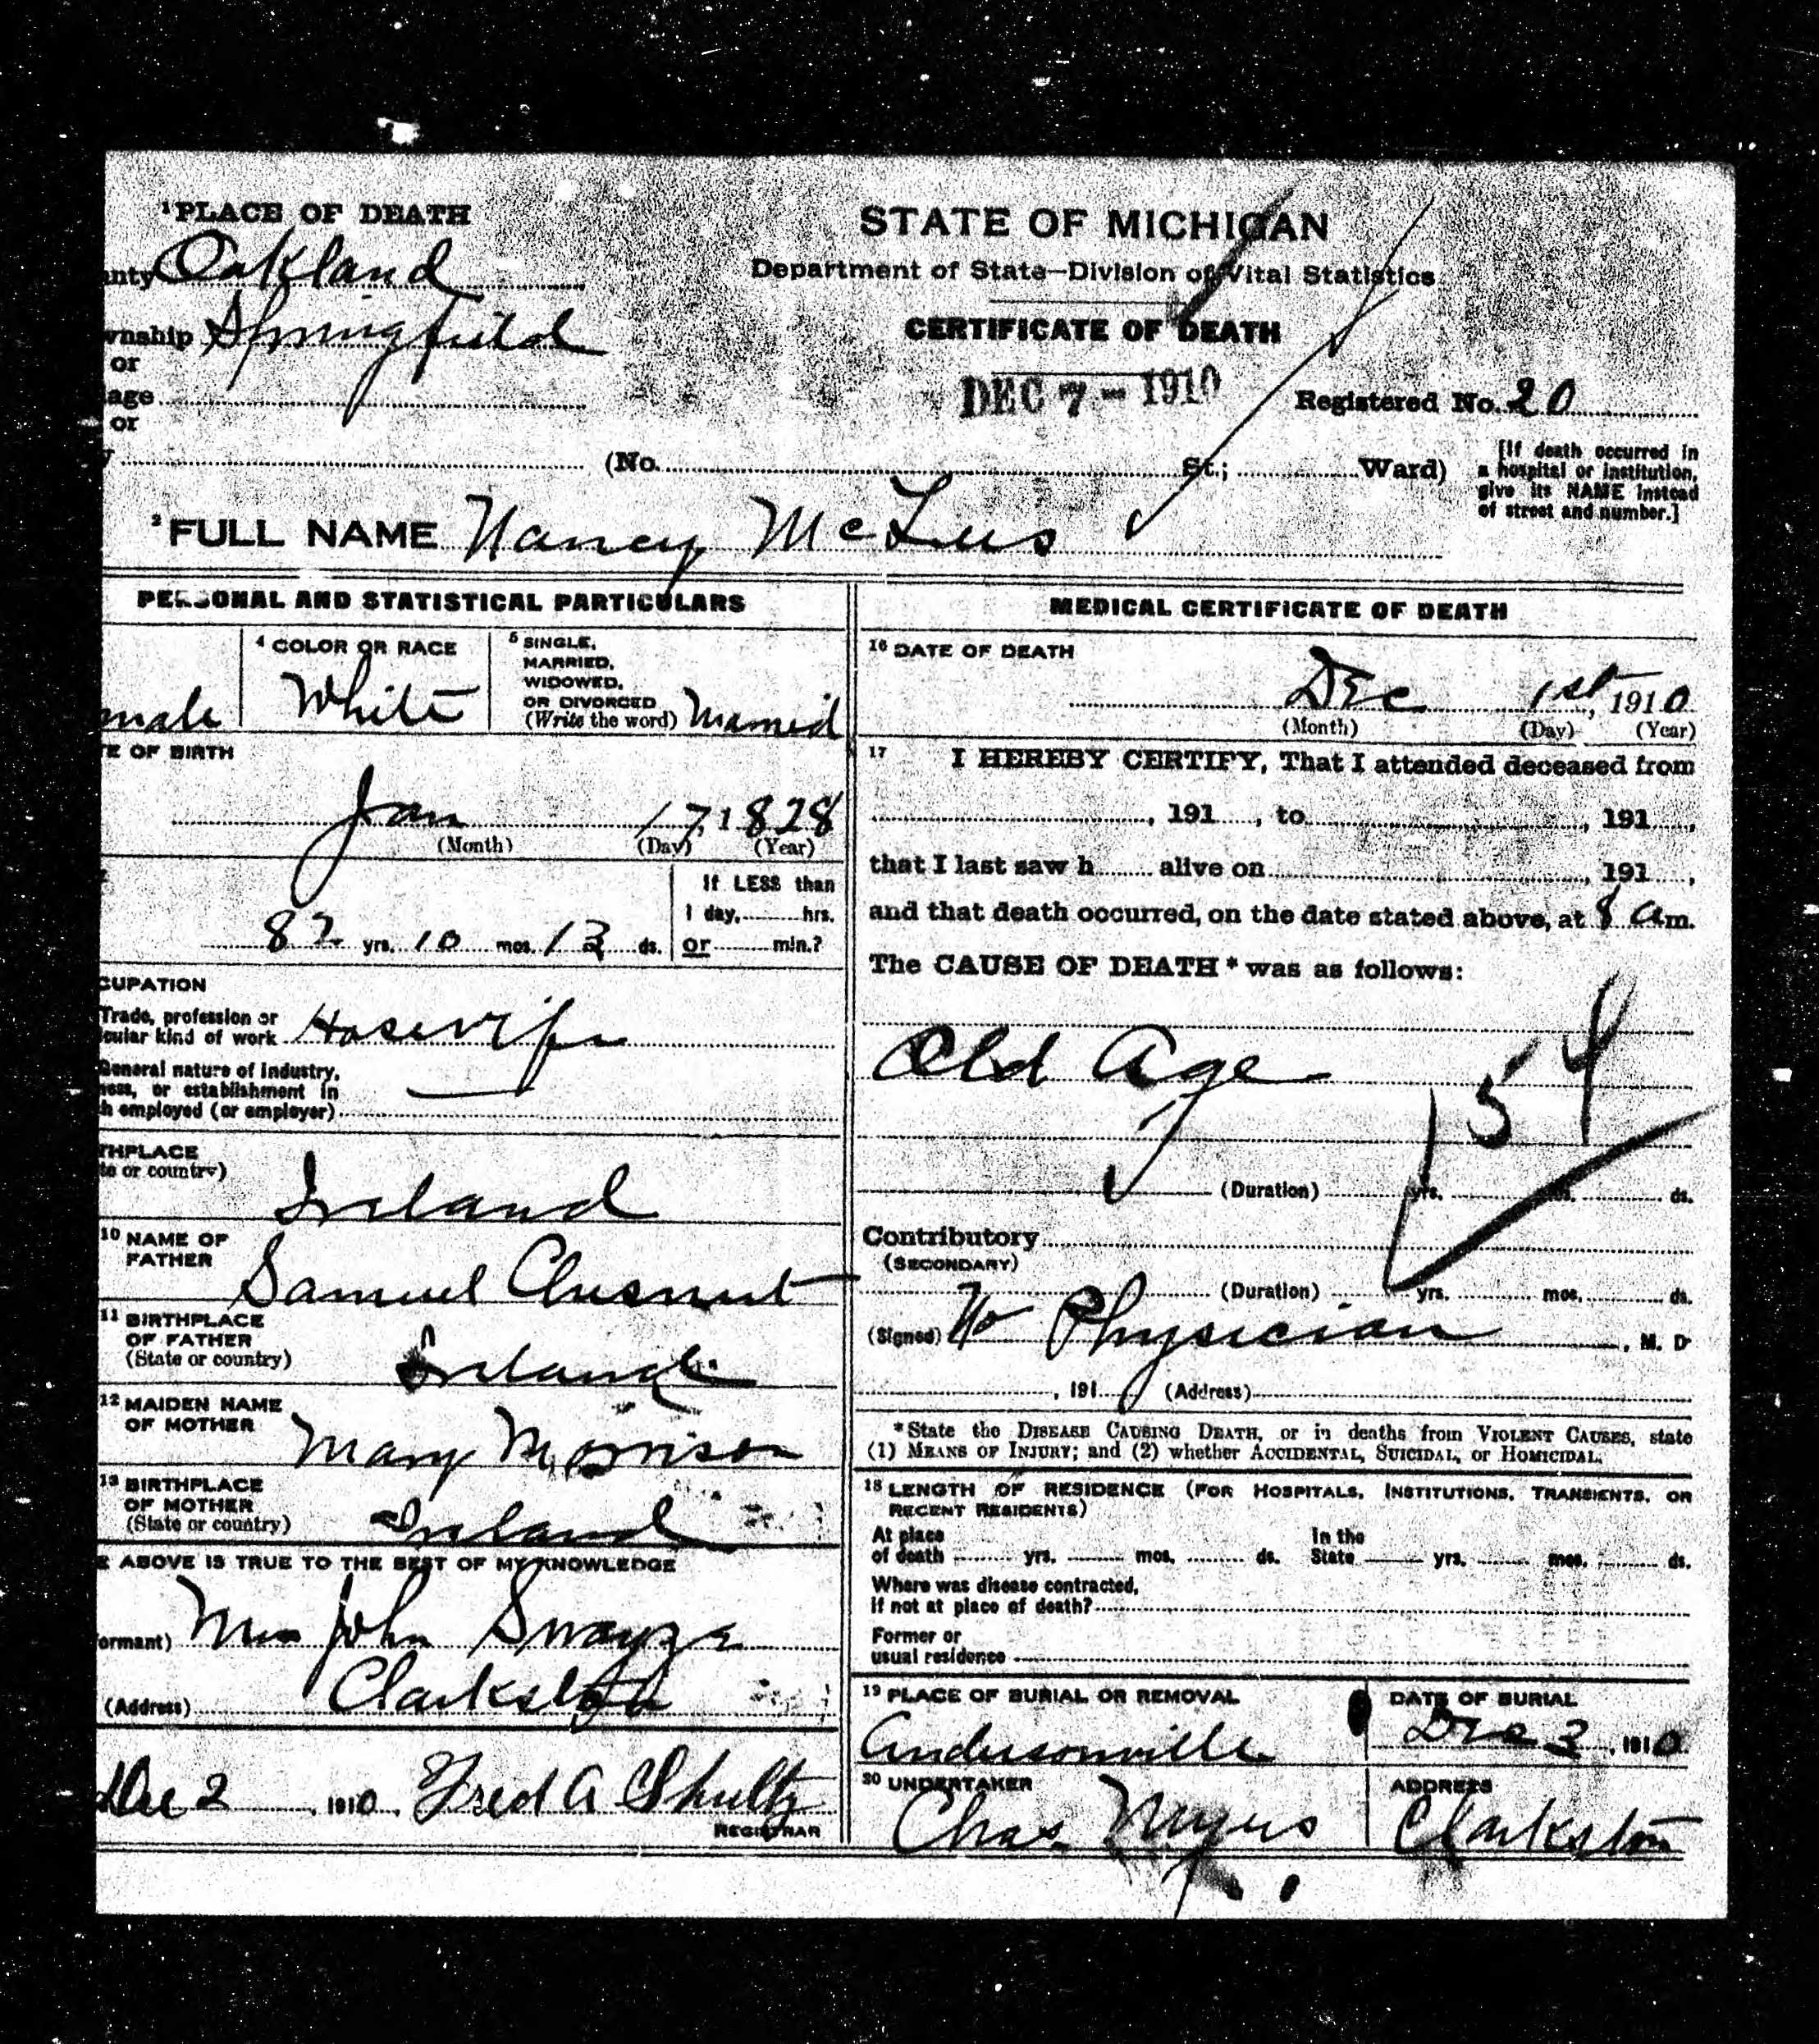 1 PLACE OF DEATH
nty Oakland
wnship Springfield
or
age
or
y (No. St.; Ward)
STATE OF MICHIGAN
Department of State—Division of Vital Statistics
CERTIFICATE OF DEATH
DEC 7 - 1910
Registered No. 20
[If death occurred in
a hospital or institution,
give its NAME instead
of street and number.]
2 FULL NAME Nancy McLees
PERSONAL AND STATISTICAL PARTICULARS
male
4 COLOR OR RACE
White
5 SINGLE,
MARRIED,
WIDOWED,
OR DIVORCED
(Write the word) Married
TE OF BIRTH
Jan 17, 1828
(Month) (Day) (Year)
82 yrs. 10 mos. 13 ds.
If LESS than
1 day, hrs.
or min.?
CUPATION
Trade, profession or
cular kind of work Hosewife
General nature of industry,
ness, or establishment in
h employed (or employer)
THPLACE
te or country)
Ireland
10 NAME OF
FATHER
Samuel Chesnut
11 BIRTHPLACE
OF FATHER
(State or country)
Ireland
12 MAIDEN NAME
OF MOTHER
Mary Morrison
13 BIRTHPLACE
OF MOTHER
(State or country)
Ireland
E ABOVE IS TRUE TO THE BEST OF MY KNOWLEDGE
ormant) Mrs John Swayze
(Address) Clarkston
Dec 2, 1910. Fred A Shultz
REGISTRAR
MEDICAL CERTIFICATE OF DEATH
16 DATE OF DEATH
Dec 1st, 1910
(Month) (Day) (Year)
17 I HEREBY CERTIFY, That I attended deceased from
, 191 , to , 191 ,
that I last saw h alive on , 191 ,
and that death occurred, on the date stated above, at 8 a m.
The CAUSE OF DEATH * was as follows:
Old Age
154
(Duration) yrs. mos. ds.
Contributory
(SECONDARY)
(Duration) yrs. mos. ds.
(Signed) No Physician, M. D
, 191 (Address)
* State the DISEASE CAUSING DEATH, or in deaths from VIOLENT CAUSES, state
(1) MEANS OF INJURY; and (2) whether ACCIDENTAL, SUICIDAL, or HOMICIDAL.
18 LENGTH OF RESIDENCE (FOR HOSPITALS, INSTITUTIONS, TRANSIENTS, OR
RECENT RESIDENTS)
At place
of death yrs. mos. ds.
In the
State yrs. mos. ds.
Where was disease contracted,
if not at place of death?
Former or
usual residence
19 PLACE OF BURIAL OR REMOVAL
Andersonville
DATE OF BURIAL
Dec 3, 1910
20 UNDERTAKER
Chas. Myers
ADDRESS
Clarkston